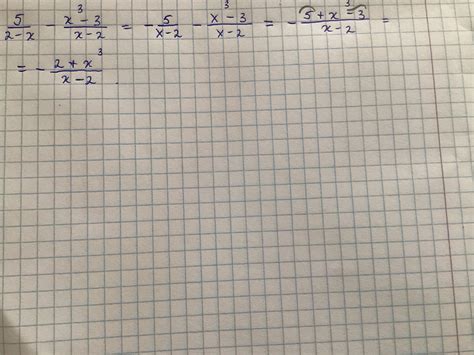 5/(2-x) - (x³-3)/(x-2) = -5/(x-2) - (x³-3)/(x-2) = -(5+x³-3)/(x-2) =
= -(2+x³)/(x-2).